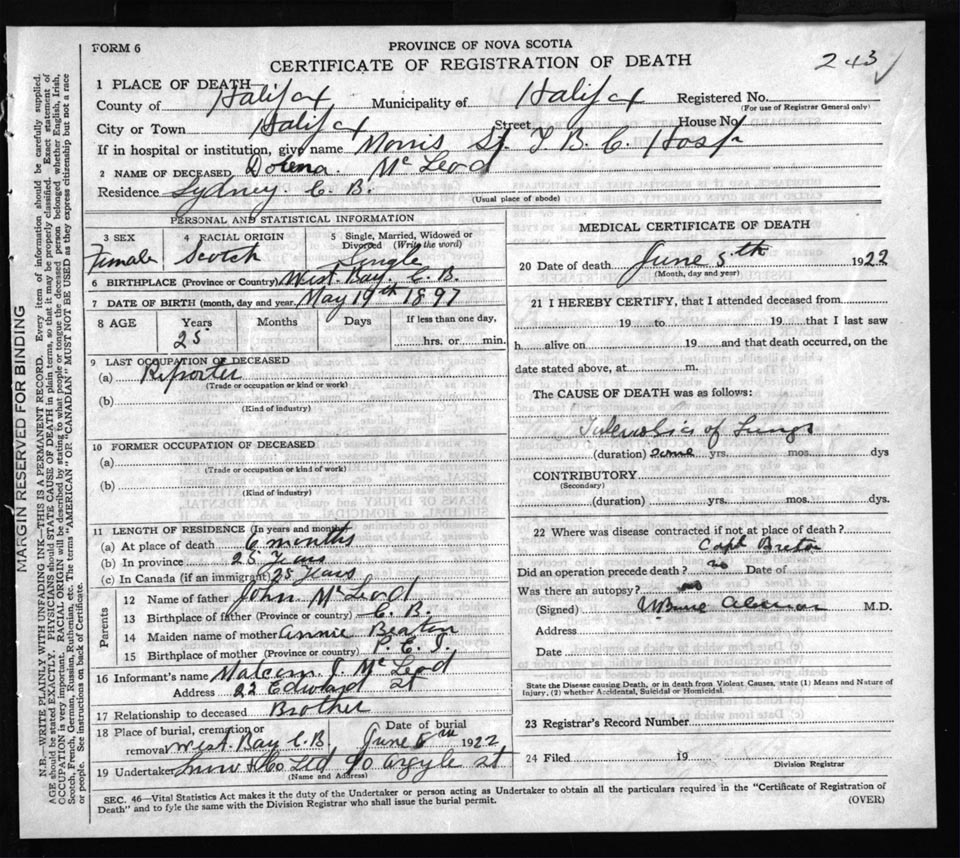 FORM 6
PROVINCE OF NOVA SCOTIA
CERTIFICATE OF REGISTRATION OF DEATH
243
1 PLACE OF DEATH
County of Halifax Municipality of Halifax Registered No.
(For use of Registrar General only)
City or Town Halifax Street House No.
If in hospital or institution, give name Morris St. T. B. C. Hosp
2 NAME OF DECEASED Dolena McLeod
Residence Sydney C. B.
(Usual place of abode)
PERSONAL AND STATISTICAL INFORMATION
3 SEX Female
4 RACIAL ORIGIN Scotch
5 Single, Married, Widowed or Divorced (Write the word) Single
6 BIRTHPLACE (Province or Country) West Bay, C. B.
7 DATE OF BIRTH (month, day and year) May 19th 1897
8 AGE Years Months Days If less than one day,
25 hrs. or min.
9 LAST OCCUPATION OF DECEASED
(a) Reporter
(Trade or occupation or kind or work)
(b)
(Kind of industry)
10 FORMER OCCUPATION OF DECEASED
(a)
(Trade or occupation or kind or work)
(b)
(Kind of industry)
11 LENGTH OF RESIDENCE (In years and months)
(a) At place of death 6 months
(b) In province 25 Years
(c) In Canada (if an immigrant) 25 Years
Parents
12 Name of father John McLeod
13 Birthplace of father (Province or country) C. B.
14 Maiden name of mother Annie Beaton
15 Birthplace of mother (Province or country) P. E. I.
16 Informant's name Malcom J. McLeod
Address 22 Edward St
17 Relationship to deceased Brother
18 Place of burial, cremation or removal West Bay C. B. Date of burial June 8th 1922
19 Undertaker Snow & Co Ltd 90 Argyle St
(Name and Address)
MEDICAL CERTIFICATE OF DEATH
20 Date of death June 5th 1922
(Month, day and year)
21 I HEREBY CERTIFY, that I attended deceased from
19 to 19 that I last saw
h alive on 19 and that death occurred, on the
date stated above, at m.
The CAUSE OF DEATH was as follows:
Tuberculosis of Lungs
(duration) some yrs. mos. dys
CONTRIBUTORY
(Secondary)
(duration) yrs. mos. dys.
22 Where was disease contracted if not at place of death?
Cape Breton
Did an operation precede death? no Date of
Was there an autopsy? no
(Signed) M.D.
Address
Date
State the Disease causing Death, or in death from Violent Causes, state (1) Means and Nature of
Injury, (2) whether Accidental, Suicidal or Homicidal.
23 Registrar's Record Number
24 Filed 19
Division Registrar
SEC. 46—Vital Statistics Act makes it the duty of the Undertaker or person acting as Undertaker to obtain all the particulars required in the "Certificate of Registration of
Death" and to fyle the same with the Division Registrar who shall issue the burial permit. (OVER)
MARGIN RESERVED FOR BINDING
N.B.—WRITE PLAINLY WITH UNFADING INK—THIS IS A PERMANENT RECORD. Every item of information should be carefully supplied.
AGE should be stated EXACTLY. PHYSICIANS should STATE CAUSE OF DEATH in plain terms, so that it may be properly classified. Exact statement of
OCCUPATION is very important. RACIAL ORIGIN will be described by stating to what people or tongue the deceased person belonged whether English, Irish,
Scotch, French, German, Russian, Ruthenian, etc. The terms "AMERICAN" OR "CANADIAN" MUST NOT BE USED as they express citizenship but not a race
or people. See instructions on back of Certificate.